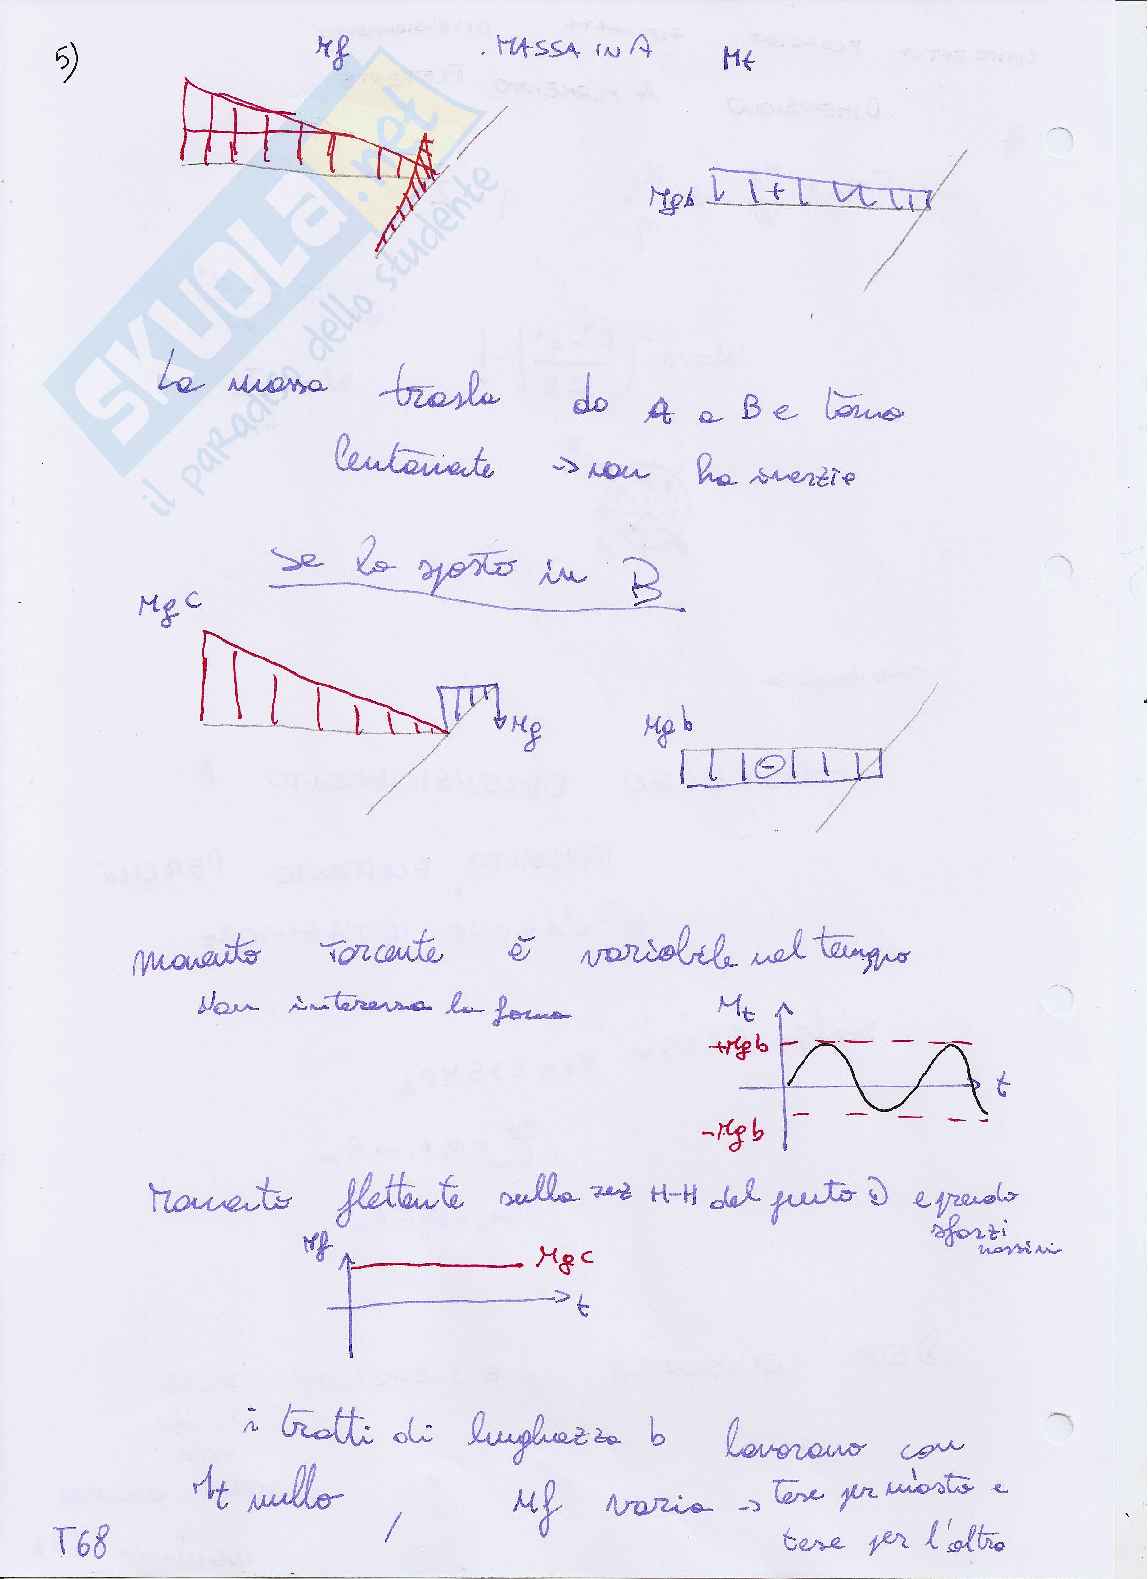 5)
Mf
. MASSA IN A
Mt
Mgb
+
La massa trasla da A a B e torna
lentamente -> non ha inerzie
se lo sposto in B
Mgc
Mg
Mgb
-
Momento Torcente è variabile nel tempo
Non interessa la forma
Mt
+Mgb
t
-Mgb
Momento flettente sulla sez H-H del punto D e prendo
sforzi
massimi
Mf
Mgc
t
i tratti di lunghezza b lavorano con
Mt nullo, Mf varia -> tese per
tese per l'altro
T68
SKUOLA.net
il paradiso dello studente